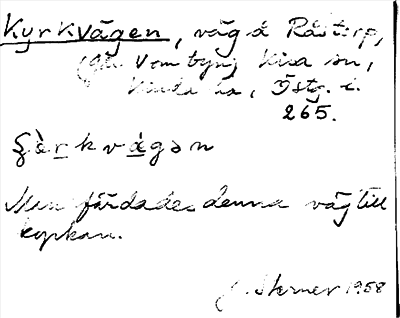 Kyrkvägen, väg å Råstorp,
Vombyn, Kisa sn,
Kinda hd, Östg. l.
265.
çὰrkvàgən
Man färdades denna väg till
kyrkan.
J. Sterner 1958